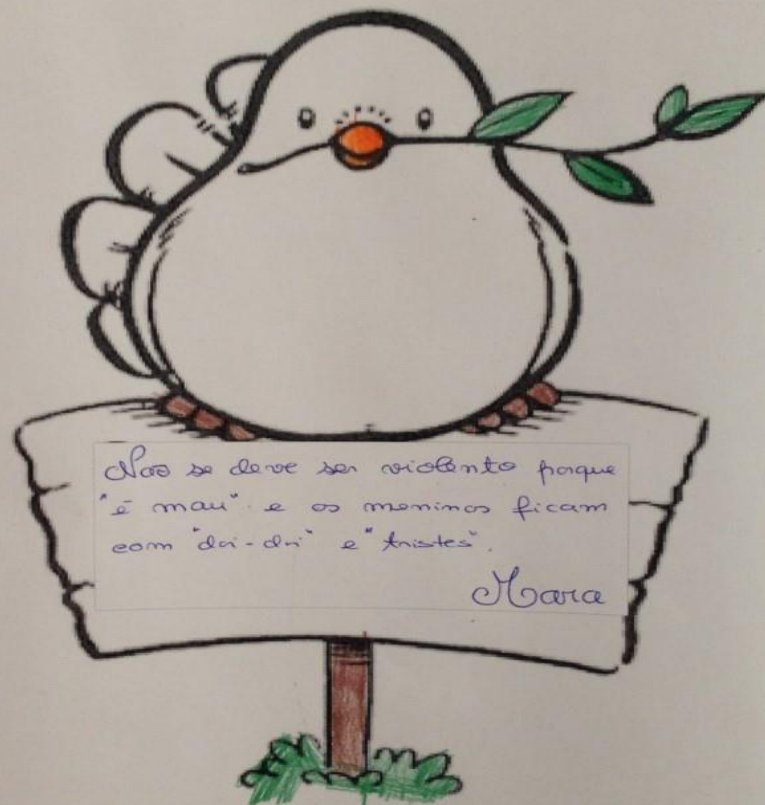 Não se deve ser violento porque
"é mau" e os meninos ficam
com "doi-doi" e "tristes".
Mara